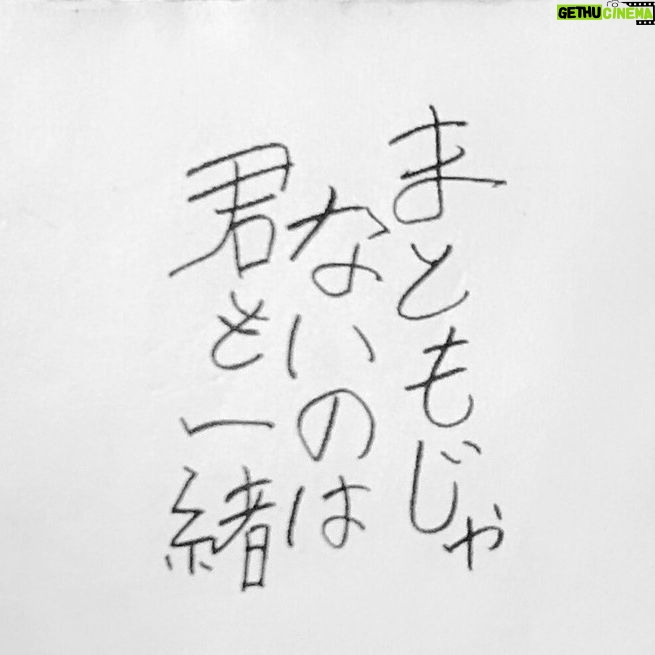 まともじゃ
ないのは
君と一緒
GETHU CINEMA